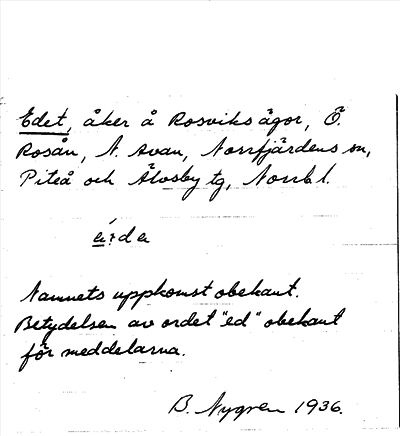 Edet, åker å Rosviks ägor, Ö.
Rosån, N. Avan, Norrfjärdens sn,
Piteå och Älvsby tg, Norrb l.
Namnets uppkomst obekant.
Betydelsen av ordet "ed" obekant
för meddelarna.
B. Nygren 1936.